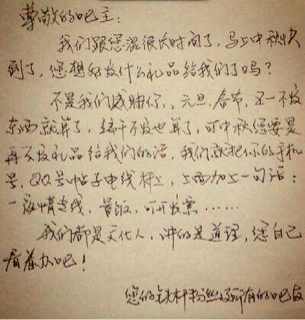 尊敬的吧主：
我们跟您混很长时间了，马上中秋快
到了，您想好发什么礼品给我们了吗？
不是我们威胁你，元旦、春节、五一不发
东西就算了，端午不发也算了，可中秋您要是
再不发礼品给我们的话，我们就把你的手机
号，QQ号帖子电线杆上，上面加上一句话：
一夜情专线，贵的，可开发票……
我们都是文化人，讲的是道理，您自己
看着办吧！
您的铁杆粉丝及所有的吧友